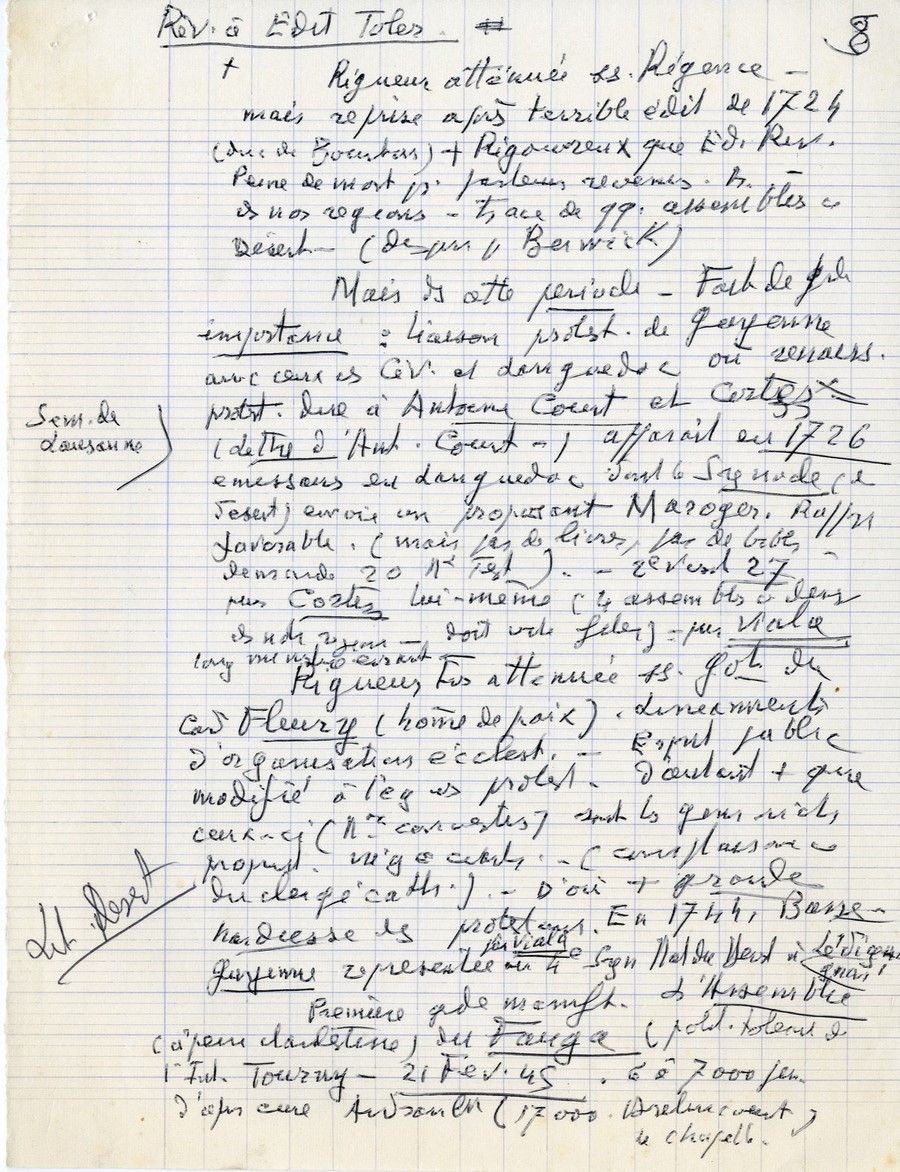 Rév. à Édit Toler.
8
+ Rigueur atténuée ss. Régence -
mais reprise après terrible édit de 1724
(duc de Bourbon) + Rigoureux que Éd. Rév.
Peine de mort pr. pasteurs revenus.
ds nos régions - trace de qq. assemblées
Désert - ( Berwick)
Mais ds cette période - Fait de gde
importance : liaison protest. de Guyenne
avec ceux des Cév. et Languedoc où renaiss.
protest. due à Antoine Court et Cortès x
Sém. de
Lausanne
(lettre d'Ant. Court -) apparaît en 1726
émissaires en Languedoc dont le Synode (
Désert) envoie un proposant Maroger. Rapp
favorable. (mais pas de livres, pas de bibles
demande 20 Nx Test). - 27
puis Cortès lui-même (4 assemblées
ds notre région - doit filer) - puis Viala
long ministère
Rigueur atténuée ss. Got. du
Card Fleury (homme de paix). Linéaments
d'organisation ecclést. - Esprit public
modifié à l'ég des protest. D'autant + que
ceux-ci (Nx convertis) sont les gens riches
propriét. négociants. - (complaisance
du clergé cath.). - D'où + grande
Let. désert
hardiesse des protestans. En 1744, Basse-
Guyenne représentée par Viala au 4e Syn Nat du Désert à Lédignan
Première gde manifest. d'Assemblée
(à peine clandestine) du Fauga (polit. toléran de
l'Int. Tourny - 21 Fév. 45. 6 à 7000 pers.
d'après curé (17000
de chapelle.